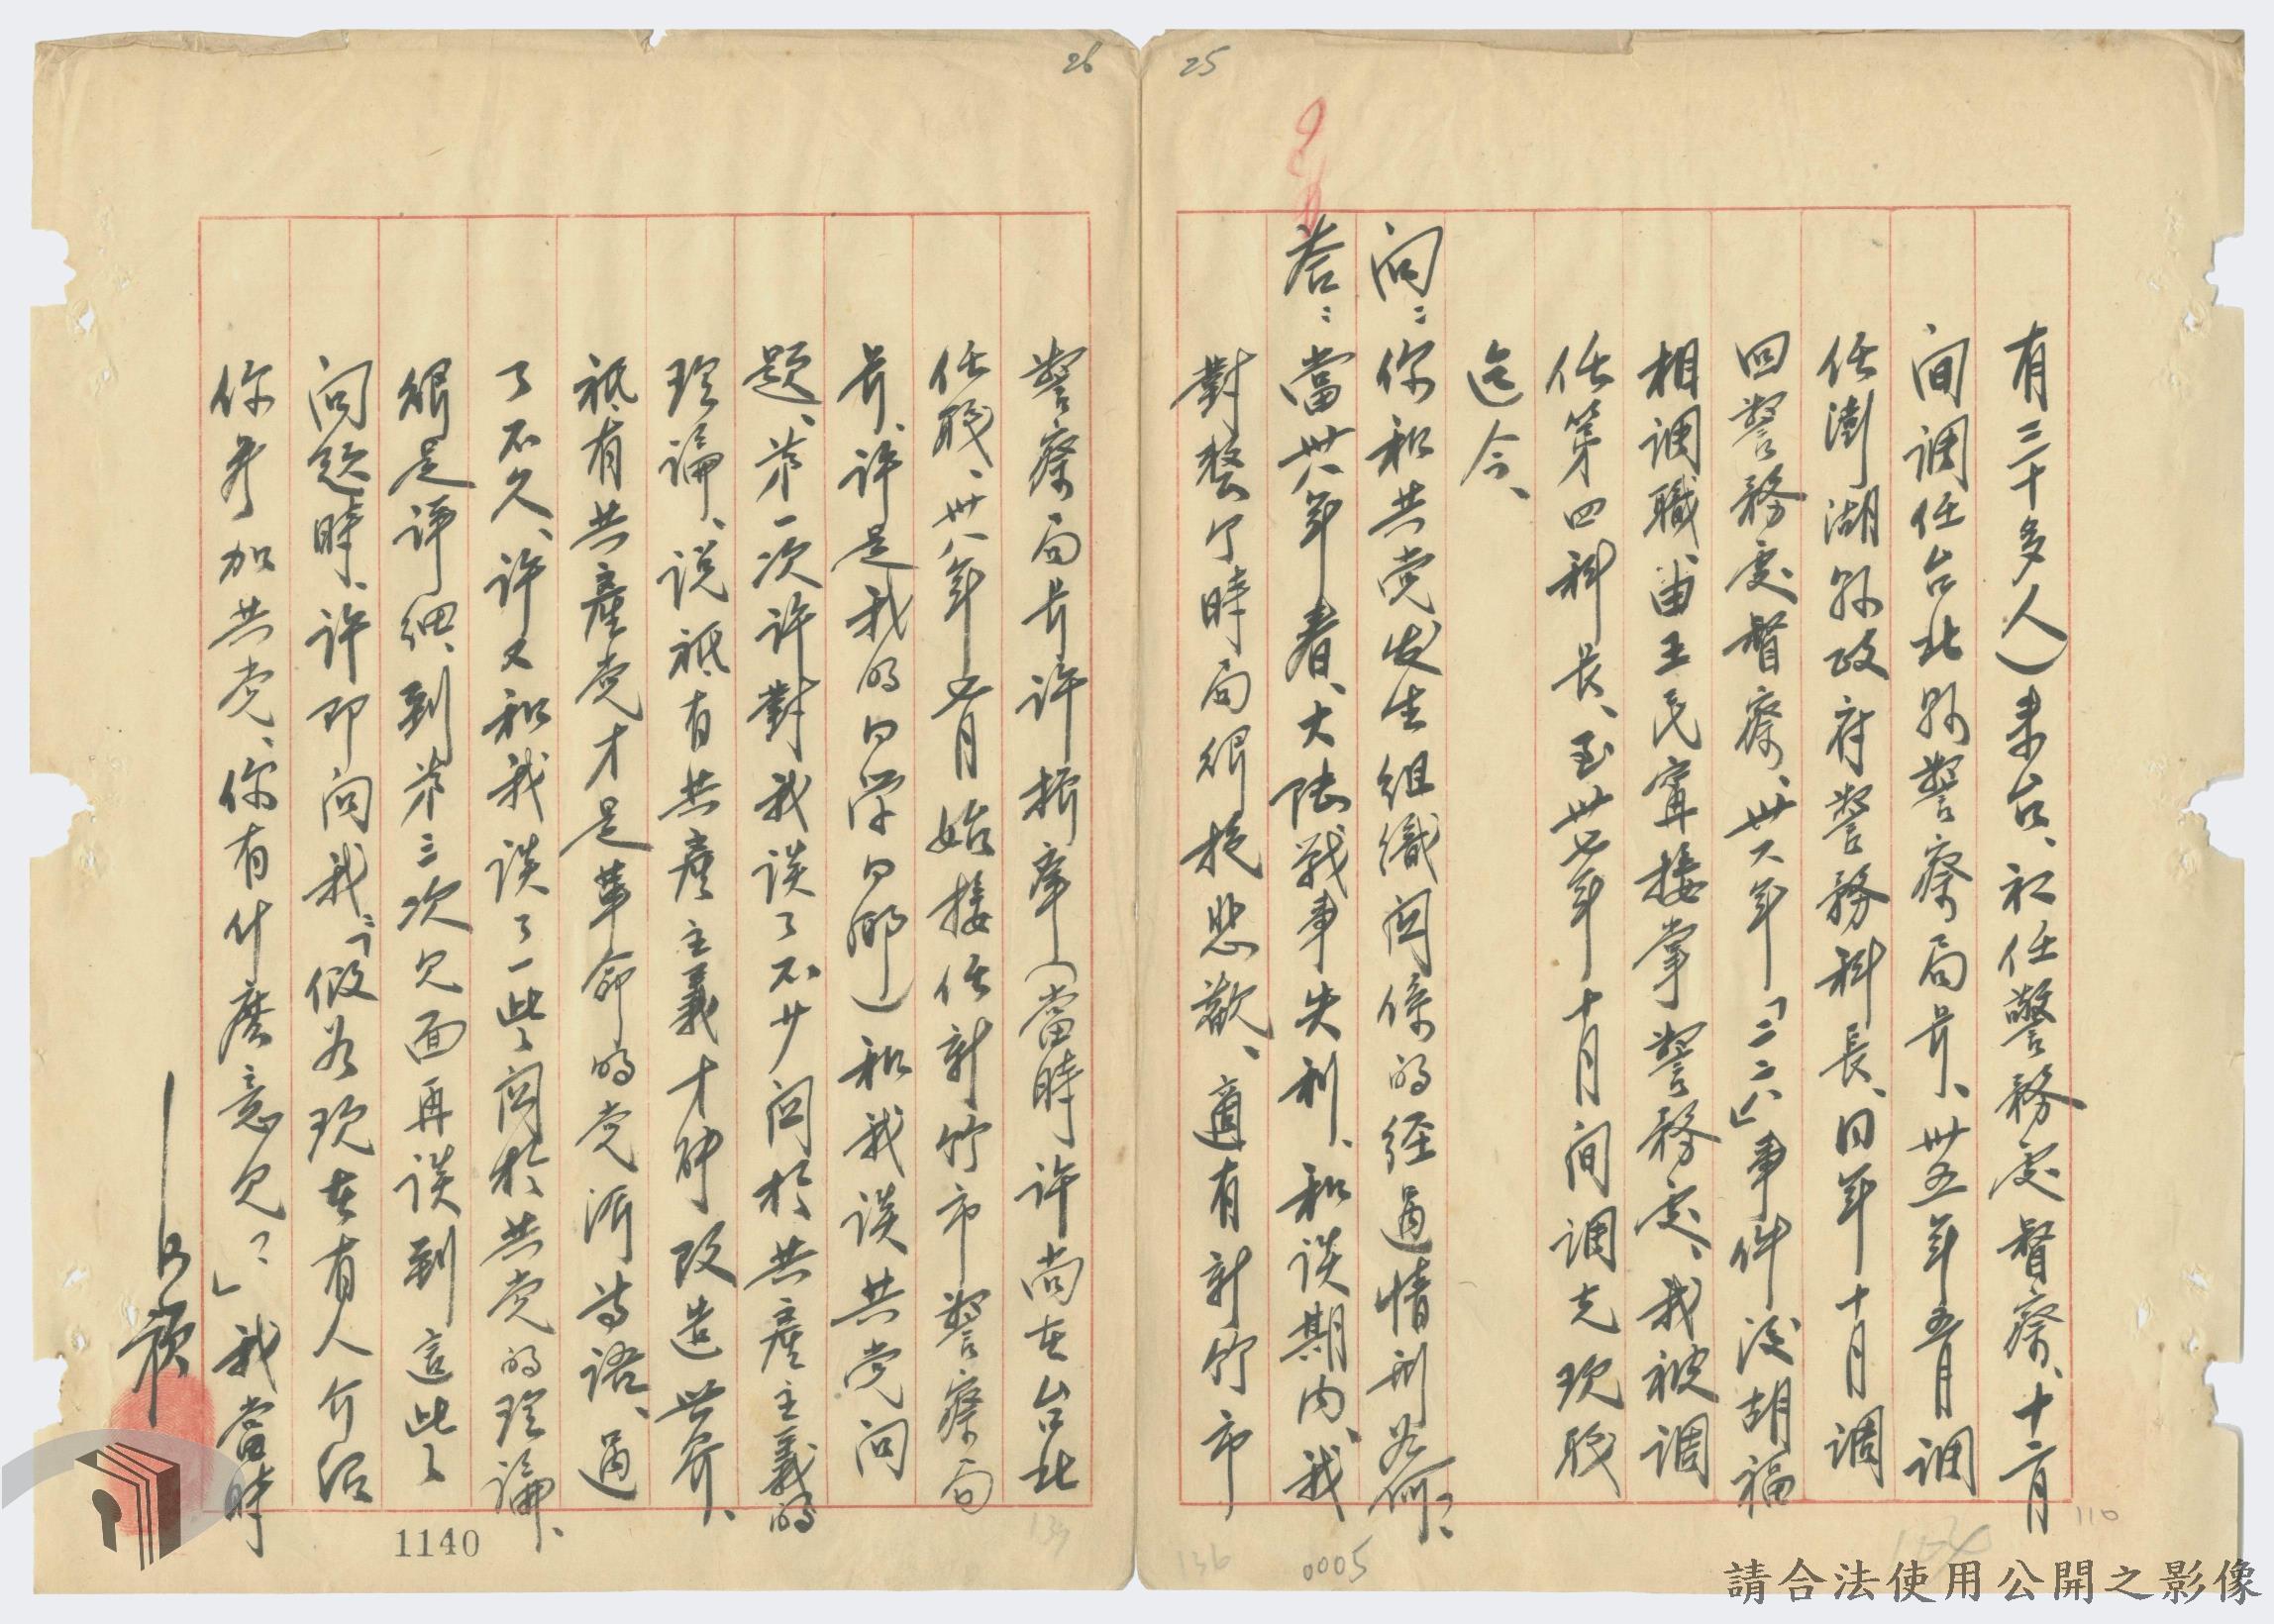 25
有三十多人）來台、初任警務處督察、十二月
間調任台北縣警察局長、卅五年五月調
任澎湖縣政府警務科長、同年十月調
回警務處督察、卅六年「二二八」事件後胡福
相調職、由王民寧接掌警務處、我被調
任第四科長、至卅七年十月間調充現職
迄今、
問：你和共党发生組織関係的經過情形如何？
答：當卅八年春、大陆戰事失利、和談期内、我
對整个時局很抱悲歡、適有新竹市
0005
136
110
26
警察局長許振庠（當時許尚在台北
任職、卅八年五月始接任新竹市警察局
長、許是我的同学同鄉）和我談共党问
題、第一次許對我談了不少関於共產主義的
理論、説祇有共產主義才能改造世界、
祇有共產党才是革命的党派等語、過
了不久、許又和我談了一些関於共党的理論、
很是詳細、到第三次見面再談到這些
问題時、許即问我：「假如現在有人介绍
你参加共党、你有什麽意見？」我當時
1140
請合法使用公開之影像